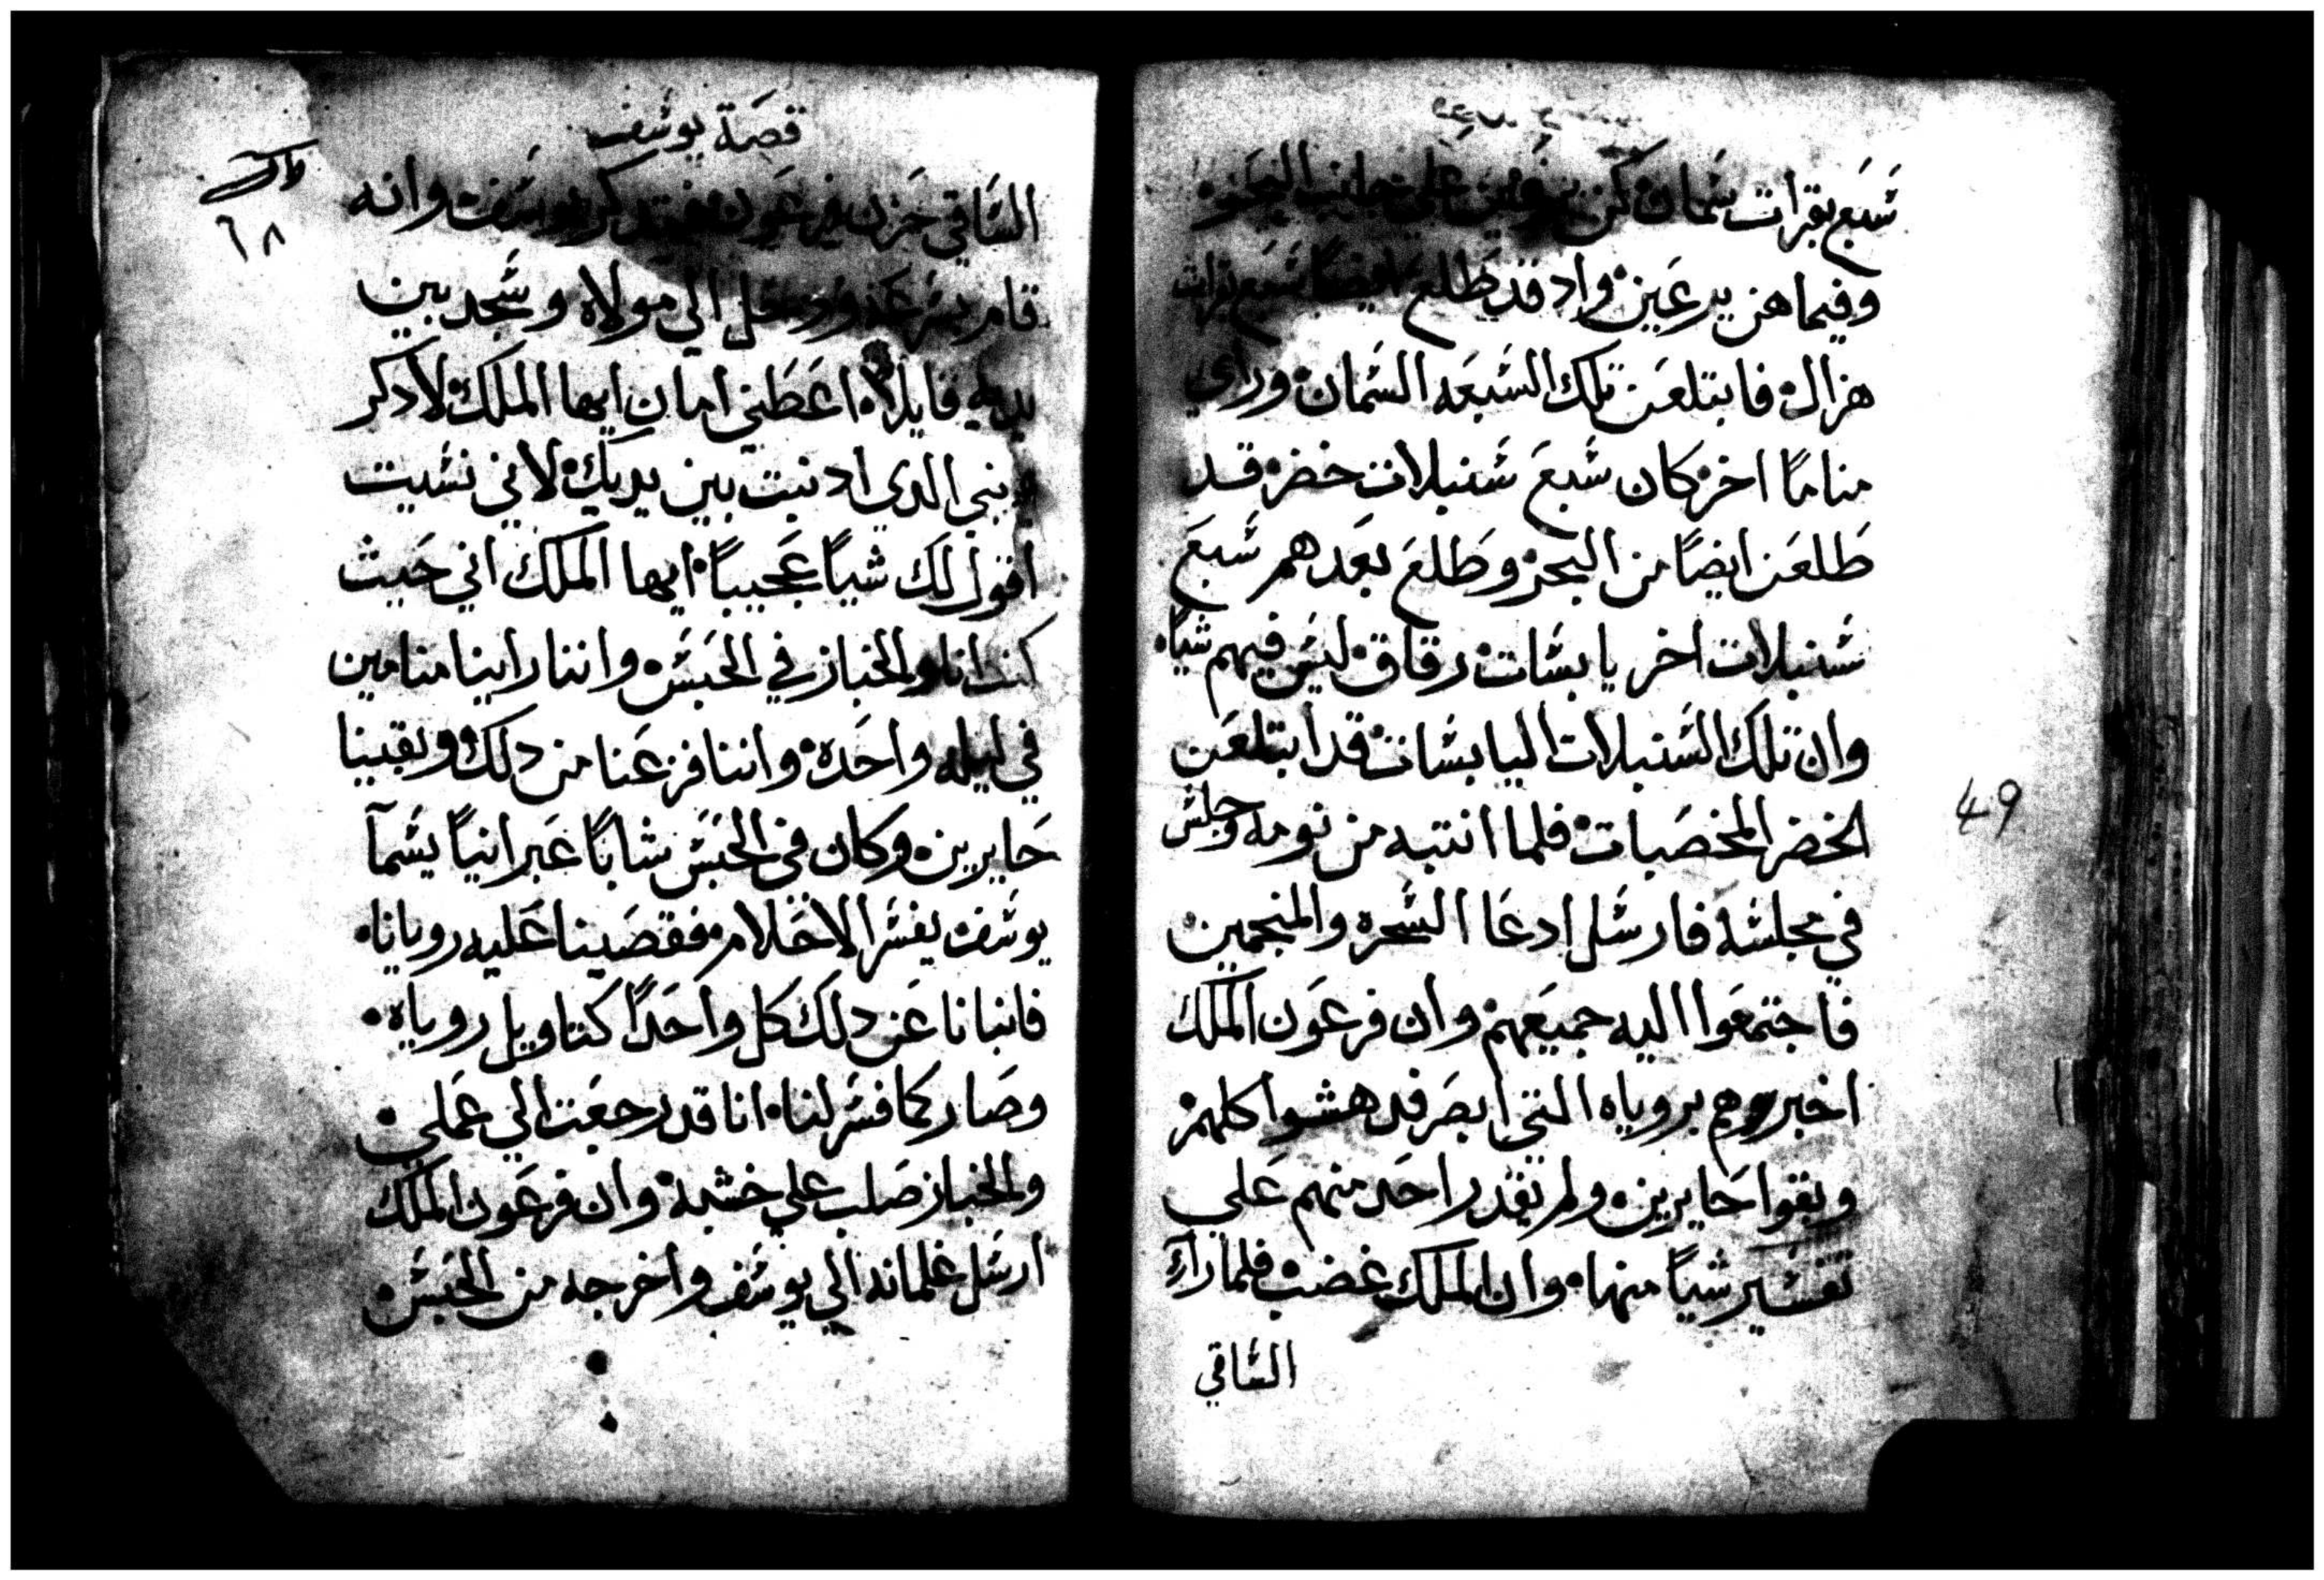 سبع بقرات سمان كن يرعين علي جانب البحر
وفيما هن يرعين واد قد طلع ايضا سبع بقرات
هزال فابتلعن تلك السبعه السمان وراي
مناما اخر كان سبع سنبلات خضر قد
طلعن ايضا من البحر وطلع بعدهم سبع
سنبلات اخر يابسات رقاق ليس فيهم شيا
وان تلك السنبلات اليابسات قد ابتلعن
الخضر المخصبات فلما انتبه من نومه وجلس
في مجلسه فارسل ادعا السحره والمنجمين
فاجتمعوا اليه جميعهم وان فرعون الملك
اخبروهم بروياه التي ابصر فدهشوا كلهم
وبقوا حايرين ولم يقدر احد منهم علي
تفسير شيا منها وان الملك غضب فلما راي
الساقي
49
قصة يوسف
٦٨
الساقي حزن فرعون فتدكر يوسف وانه
قام بسرعه ودخل الي مولاه وسجد بين
يديه قايلا اعطني امان ايها الملك لادكر
دنبي الدي ادنبت بين يديك لاني نسيت
اقول لك شيا عجيبا ايها الملك اني حيث
كنت انا والخباز في الحبس واننا راينا منامين
في ليله واحده واننا فزعنا من دلك وبقينا
حايرين وكان في الحبس شابا عبرانيا يسما
يوسف يفسر الاحلام فقصينا عليه رويانا
فانبانا عن دلك كل واحدا كتاويل روياه
وصار كما فسر لنا انا قد رجعت الي عملي
والخباز صلب علي خشبه وان فرعون الملك
ارسل غلمانه الي يوسف واخرجه من الحبس